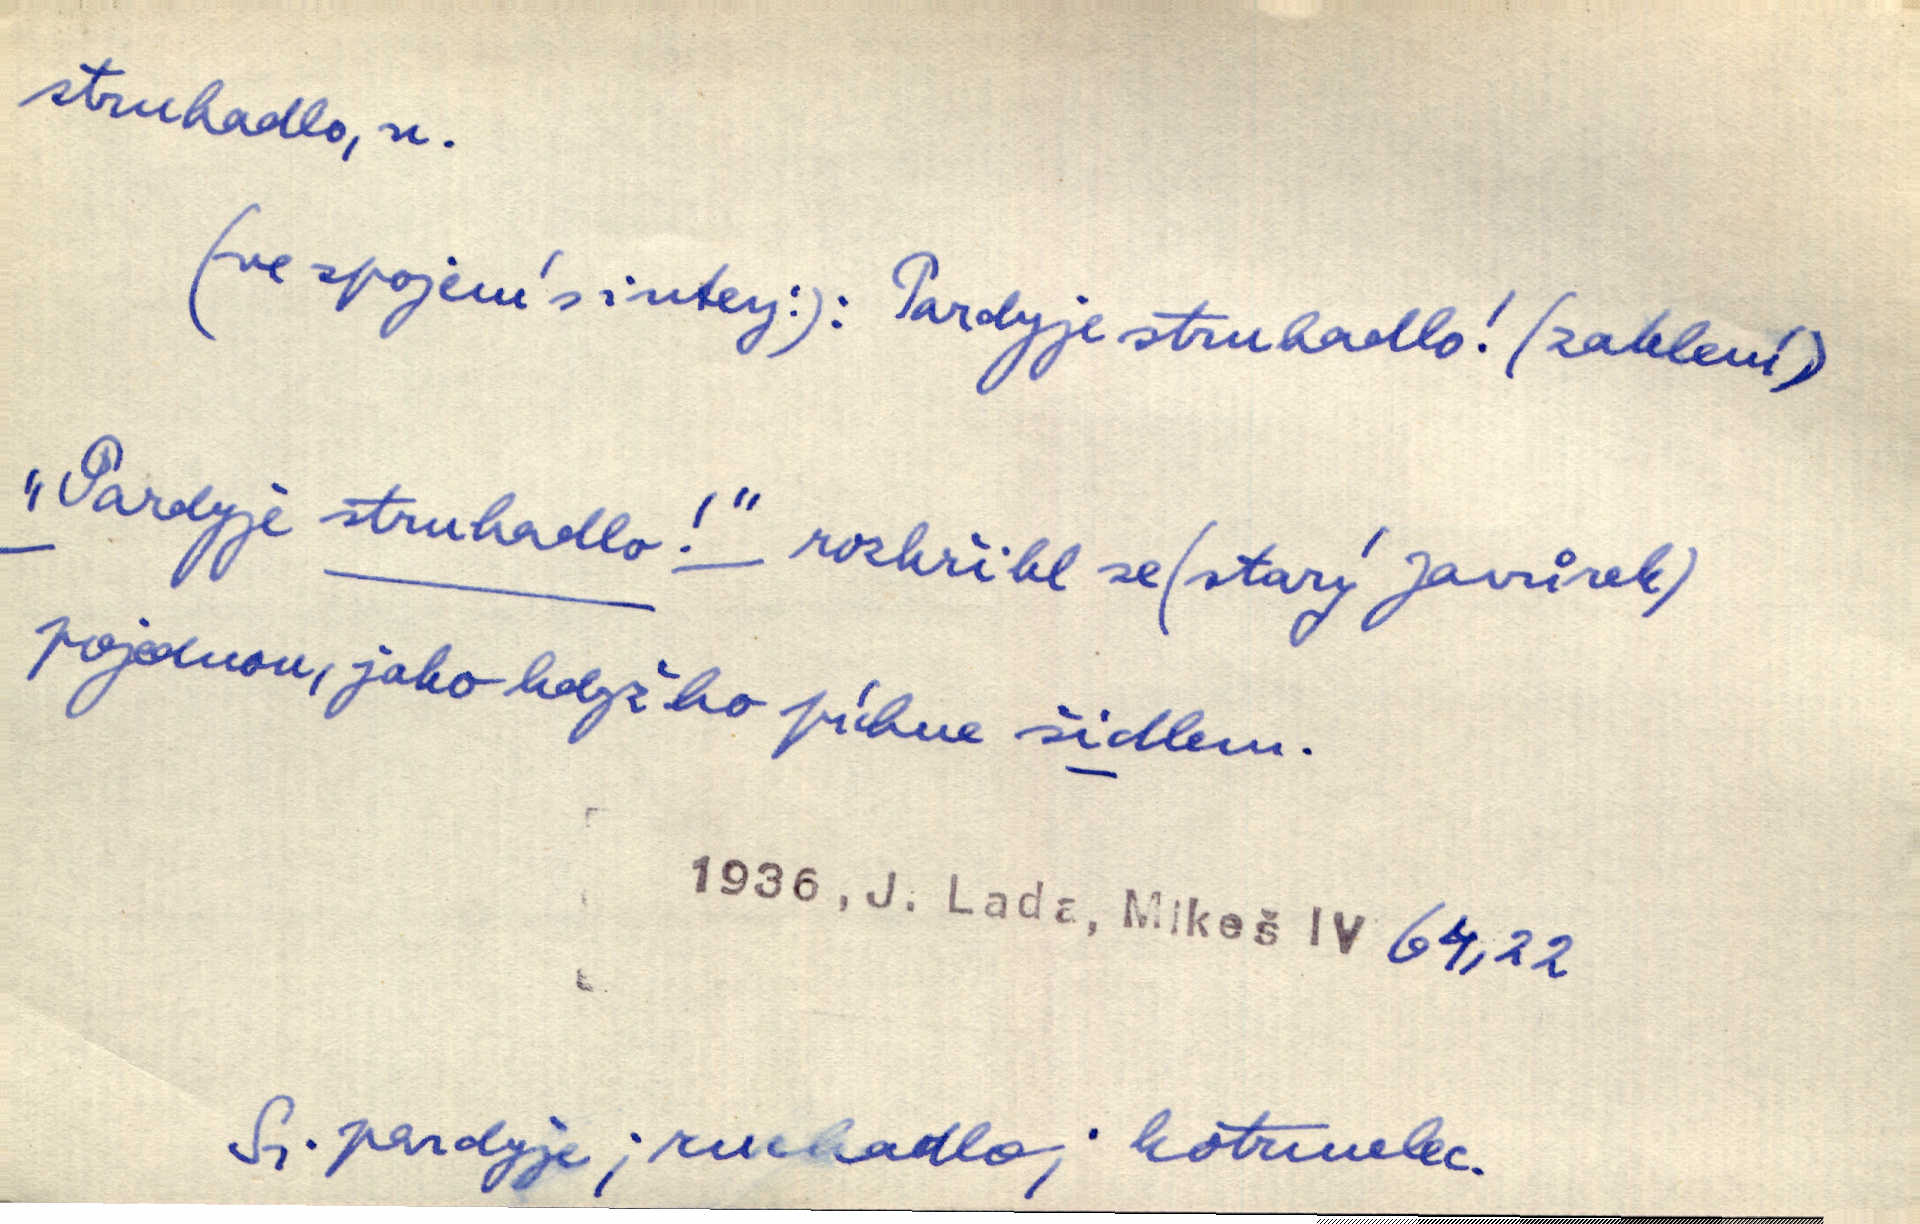 struhadlo, n.
(ve spojení s interj.): Pardyje struhadlo! (zaklení)
"Pardyje struhadlo!" rozkřikl se (starý Javůrek)
pojednou, jako když ho píchne šídlem.
1936, J. Lada, Mikeš IV 64,22
Sr. pardyje; ruchadlo;